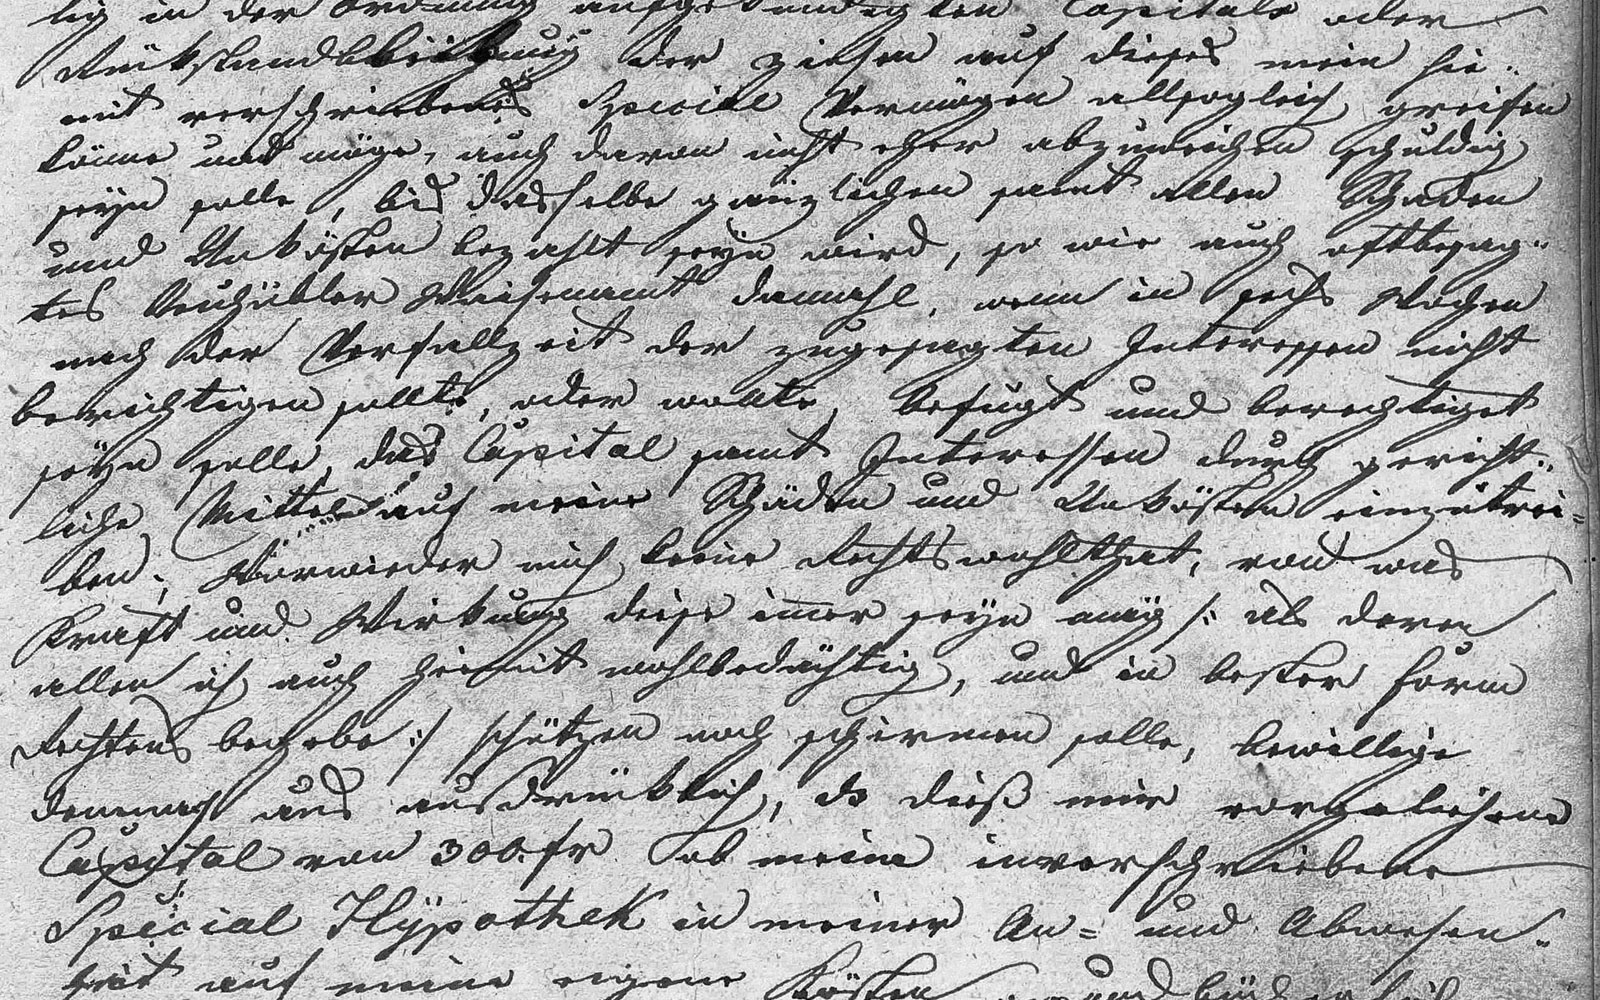 lig in der Ordnung aufgekündigten Capitals oder
Rükstandbleibung der Zinsen auf dieses mein hie-
mit verschriebenes Special Vermögen allsogleich greifen
könne und möge, auch davon nicht eher abzuweichen schuldig
seyn solle, bis dasselbe gänzlichen samt allen Schaden
und Unkösten bezahlt seyn wird, so wie auch oftbesag-
tes Neuhübler Waisenamt damahl, wenn in sechs Wochen
nach der Verfallzeit der zugesagten Interessen nicht
berichtigen sollte, oder wollte, befugt und berechtiget
seyn solle, das Capital samt Interessen durch gericht-
liche Mittel auf meine Schäden und Unkösten einzutrei-
ben; Worwieder mich keine Rechtswohlthat, von was
Kraft und Wirkung diese imer seyn mag /: als deren
allen ich auch hiemit wohlbedächtig, und in bester Form
Rechtens begebe :/ schützen noch schirmen solle, bewillige
demnach auch ausdrüklich, daß dieß mir vorgeliehene
Capital von 300 fr ob meine inverschriebene
Special Hÿpothek in meiner An- und Abwesen-
heit auf meine eigene Kösten